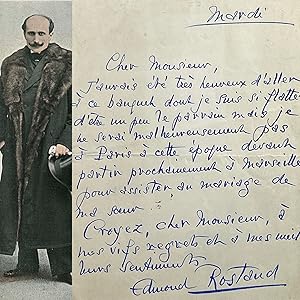 Mardi
Cher Monsieur,
J'aurais été très heureux d'aller
à ce banquet dont je suis si flatté
d'être un peu le parrain mais je
ne serai malheureusement pas
à Paris à cette époque devant
partir prochainement à Marseille
pour assister au mariage de
ma sœur
Croyez, cher Monsieur, à
mes vifs regrets et à mes meil
leurs sentiments
Edmond Rostand